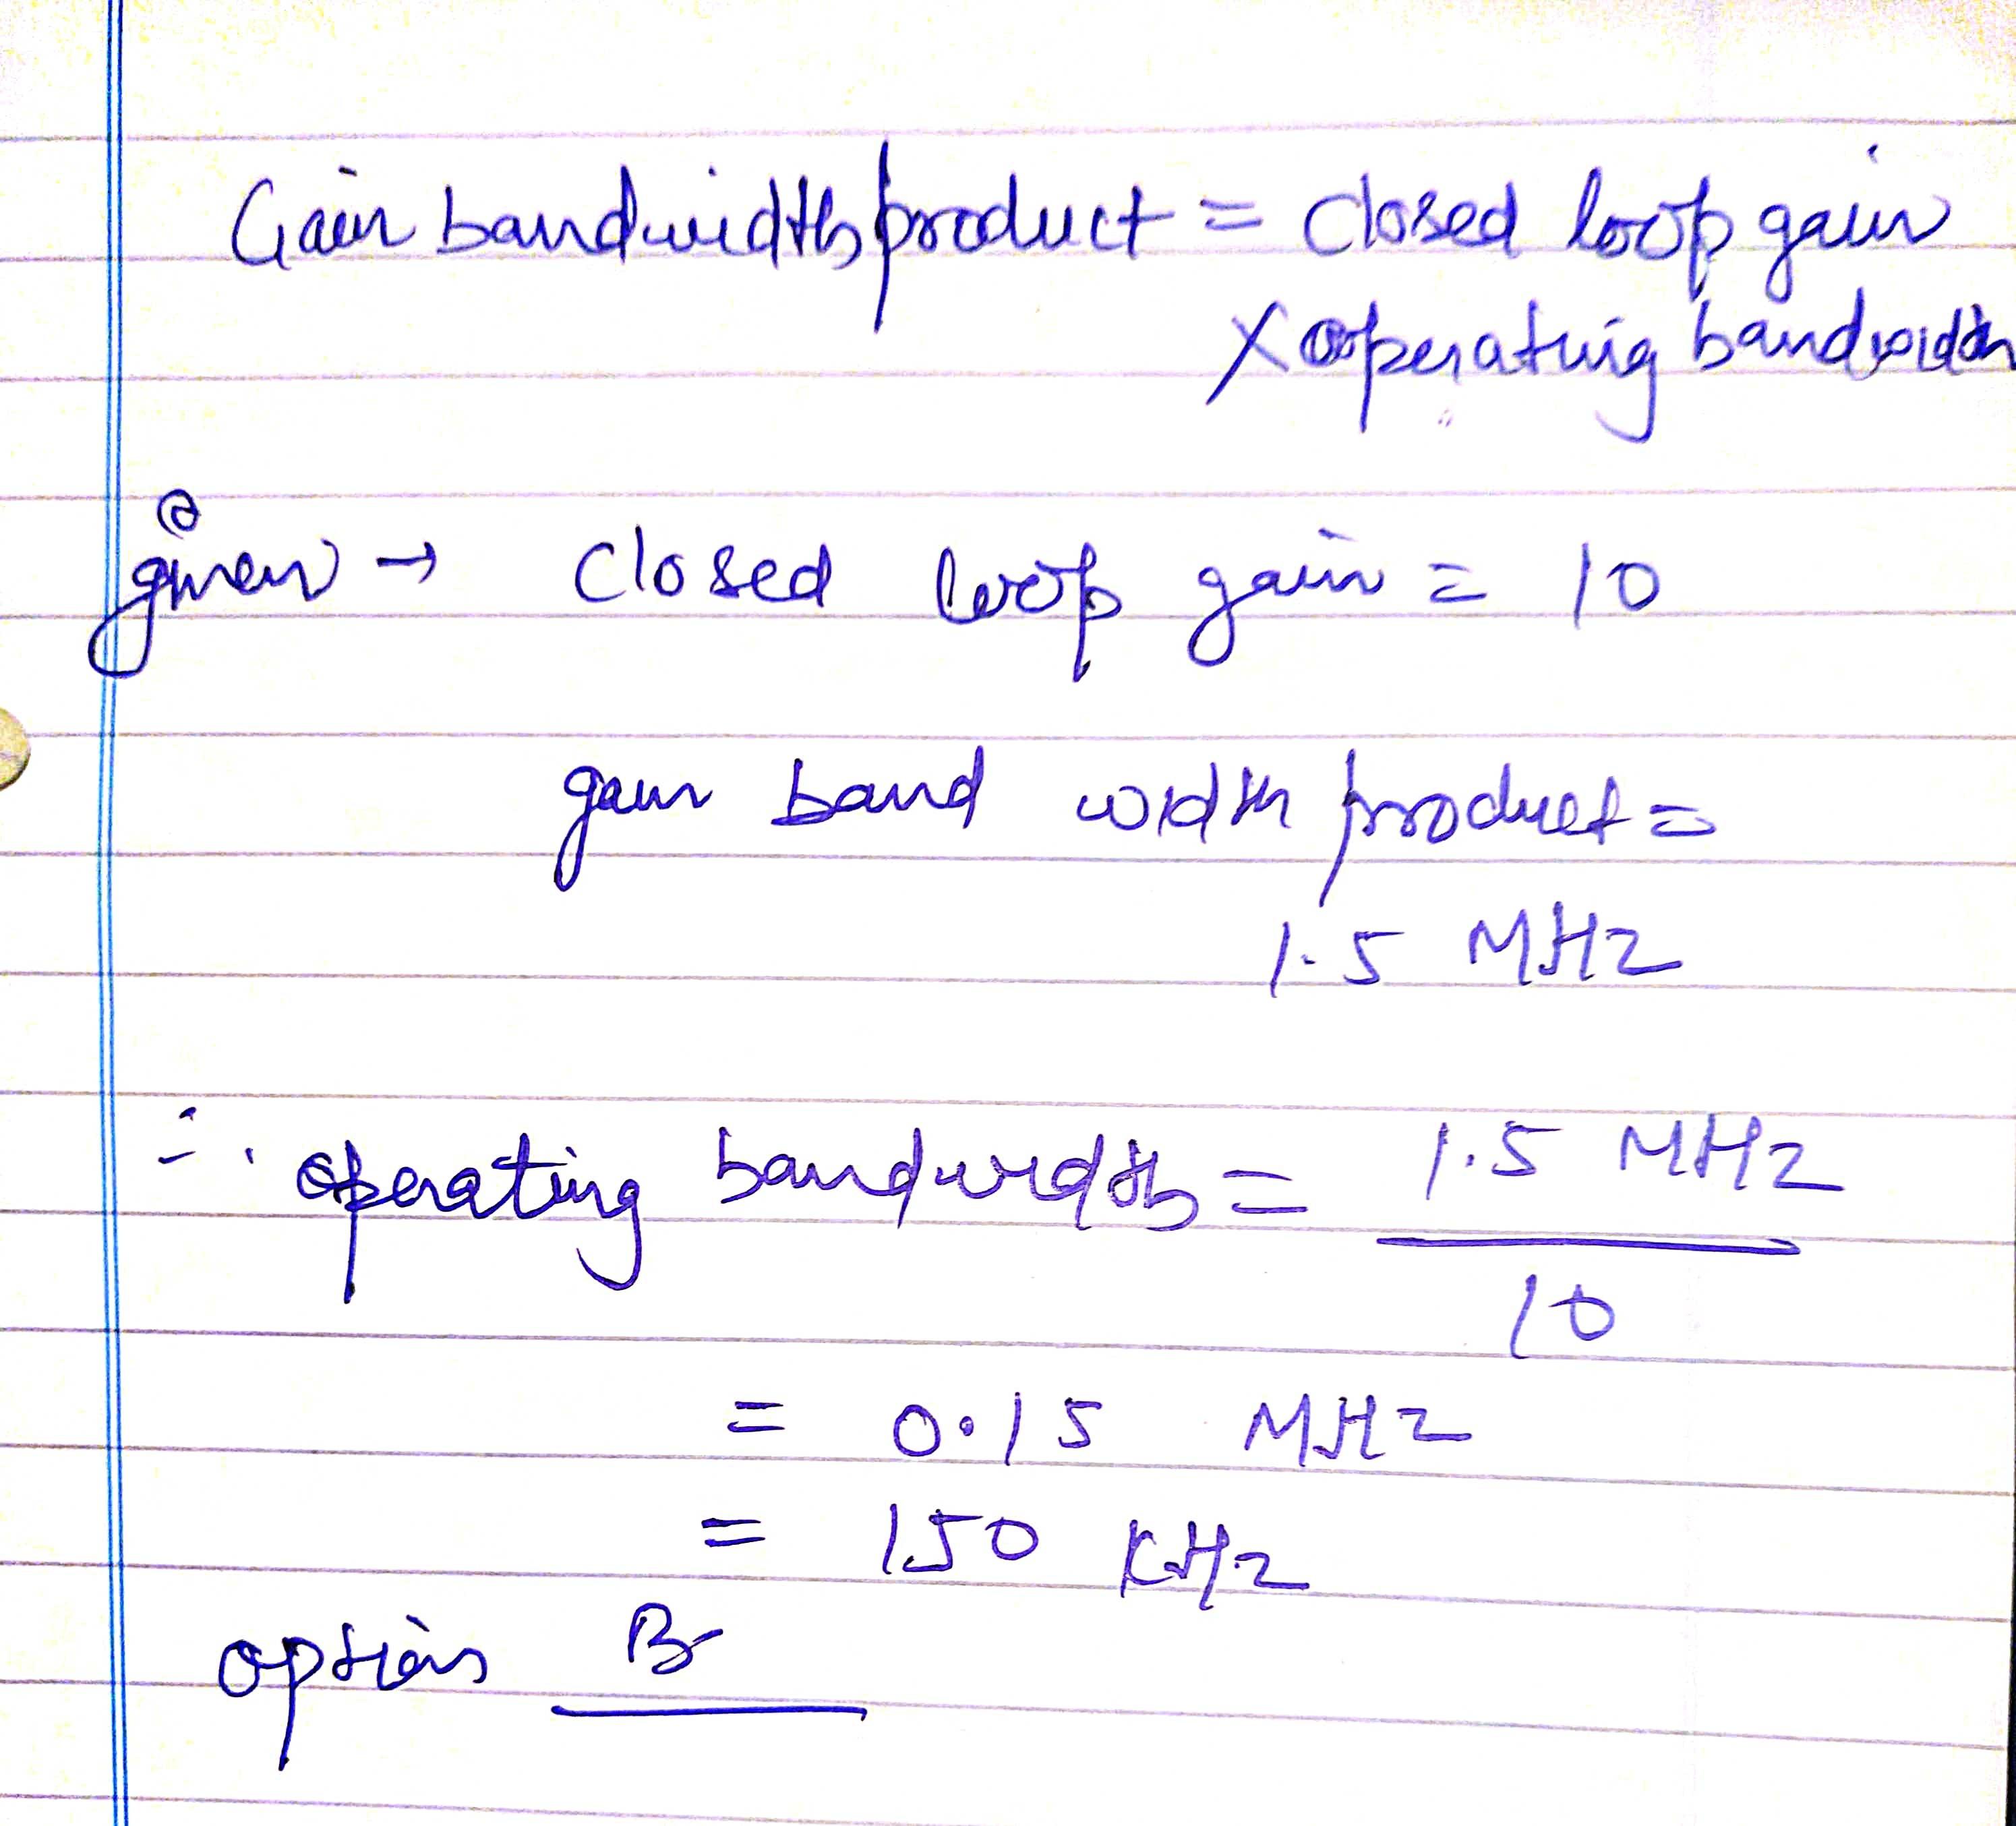 Gain bandwidth product = closed loop gain
X operating bandwidth
given → closed loop gain = 10
gain band width product =
1.5 MHz
∴ operating bandwidth = 1.5 MHz
10
= 0.15 MHz
= 150 KHz
option B